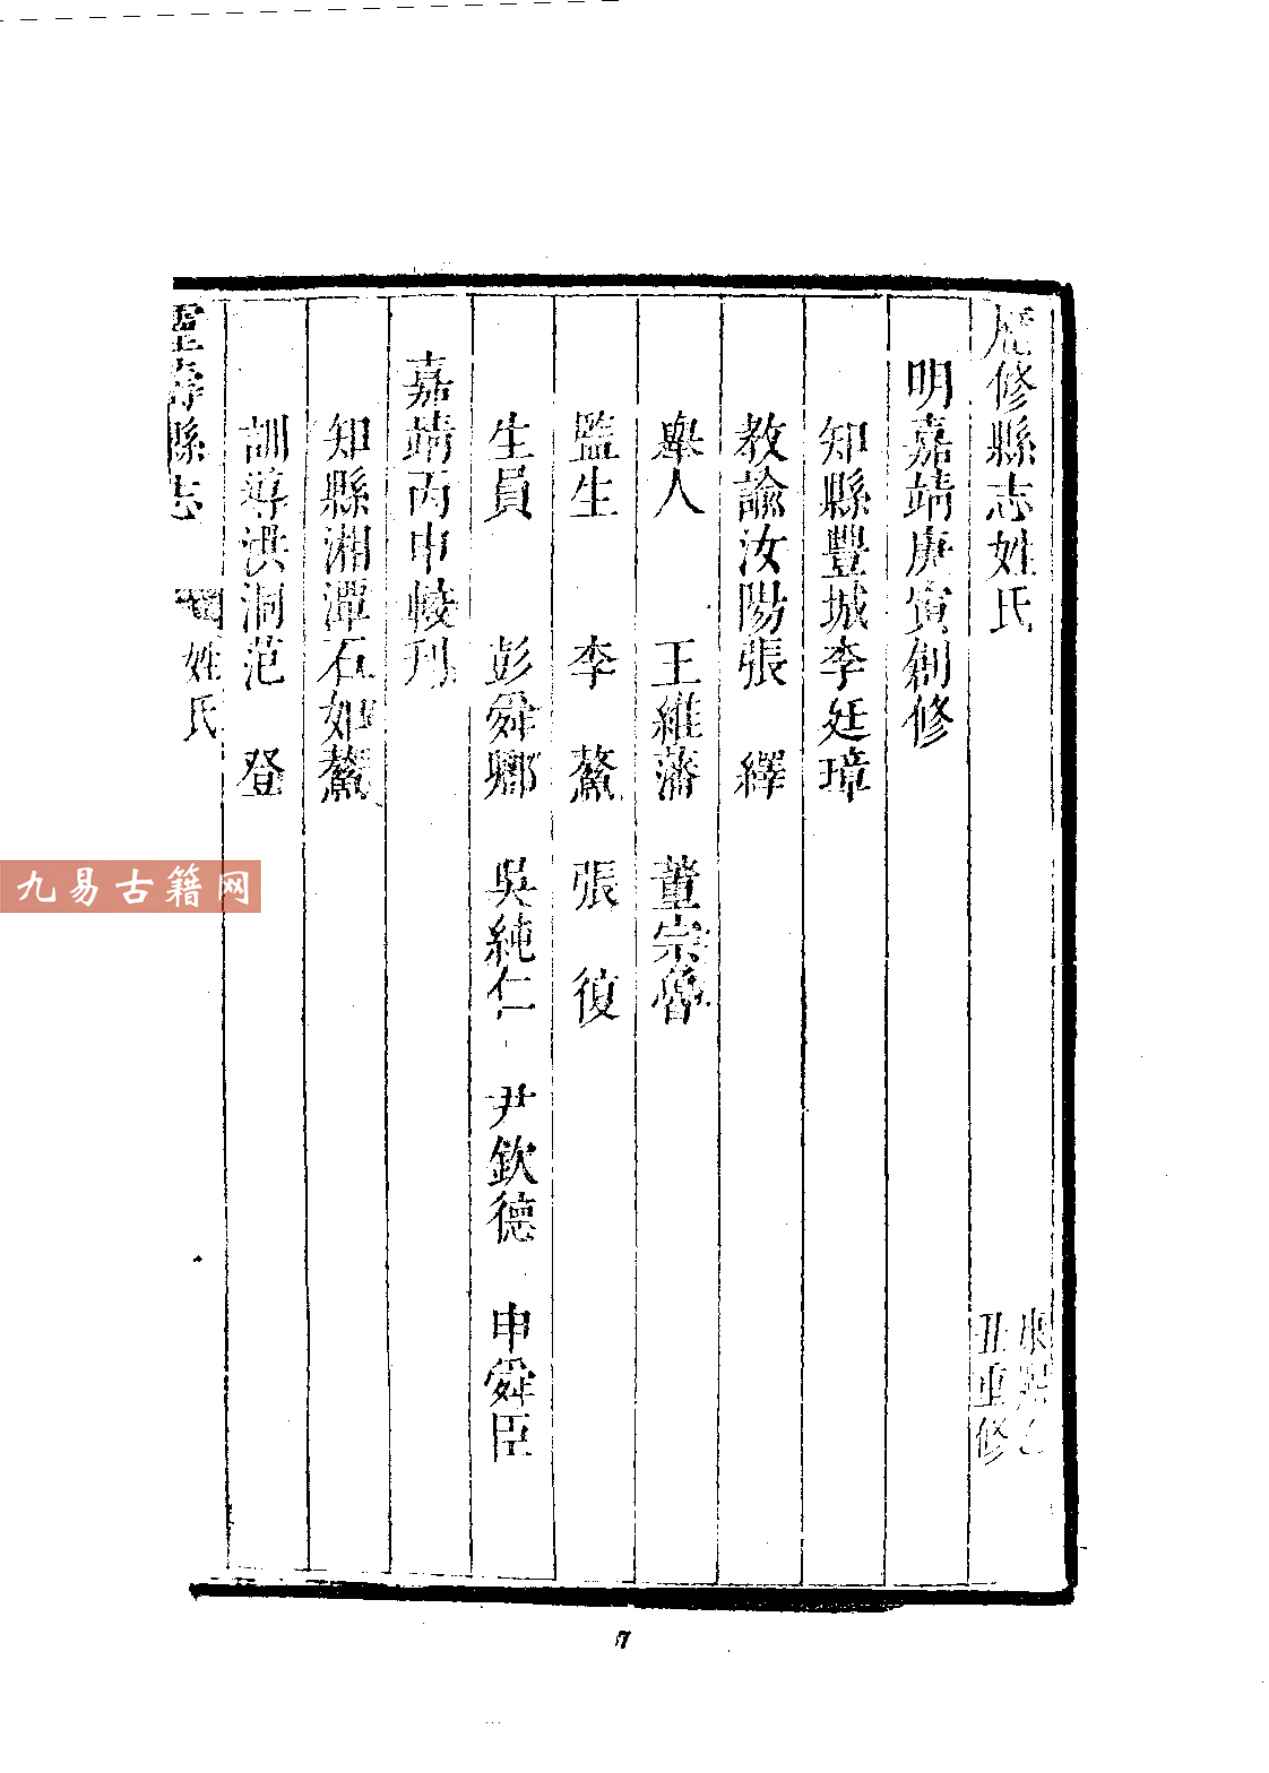 歴修縣志姓氏
康熙乙
丑重修
明嘉靖庚寅創修
知縣豐城李廷璋
教諭汝陽張 繹
舉人 王維藩 董宗魯
監生 李 鰲 張 復
生員 彭舜卿 吳純仁 尹欽德 申舜臣
嘉靖丙申

刋
知縣湘潭石如鰲
訓導洪洞范 登
靈壽縣志 姓氏
九易古籍网
7